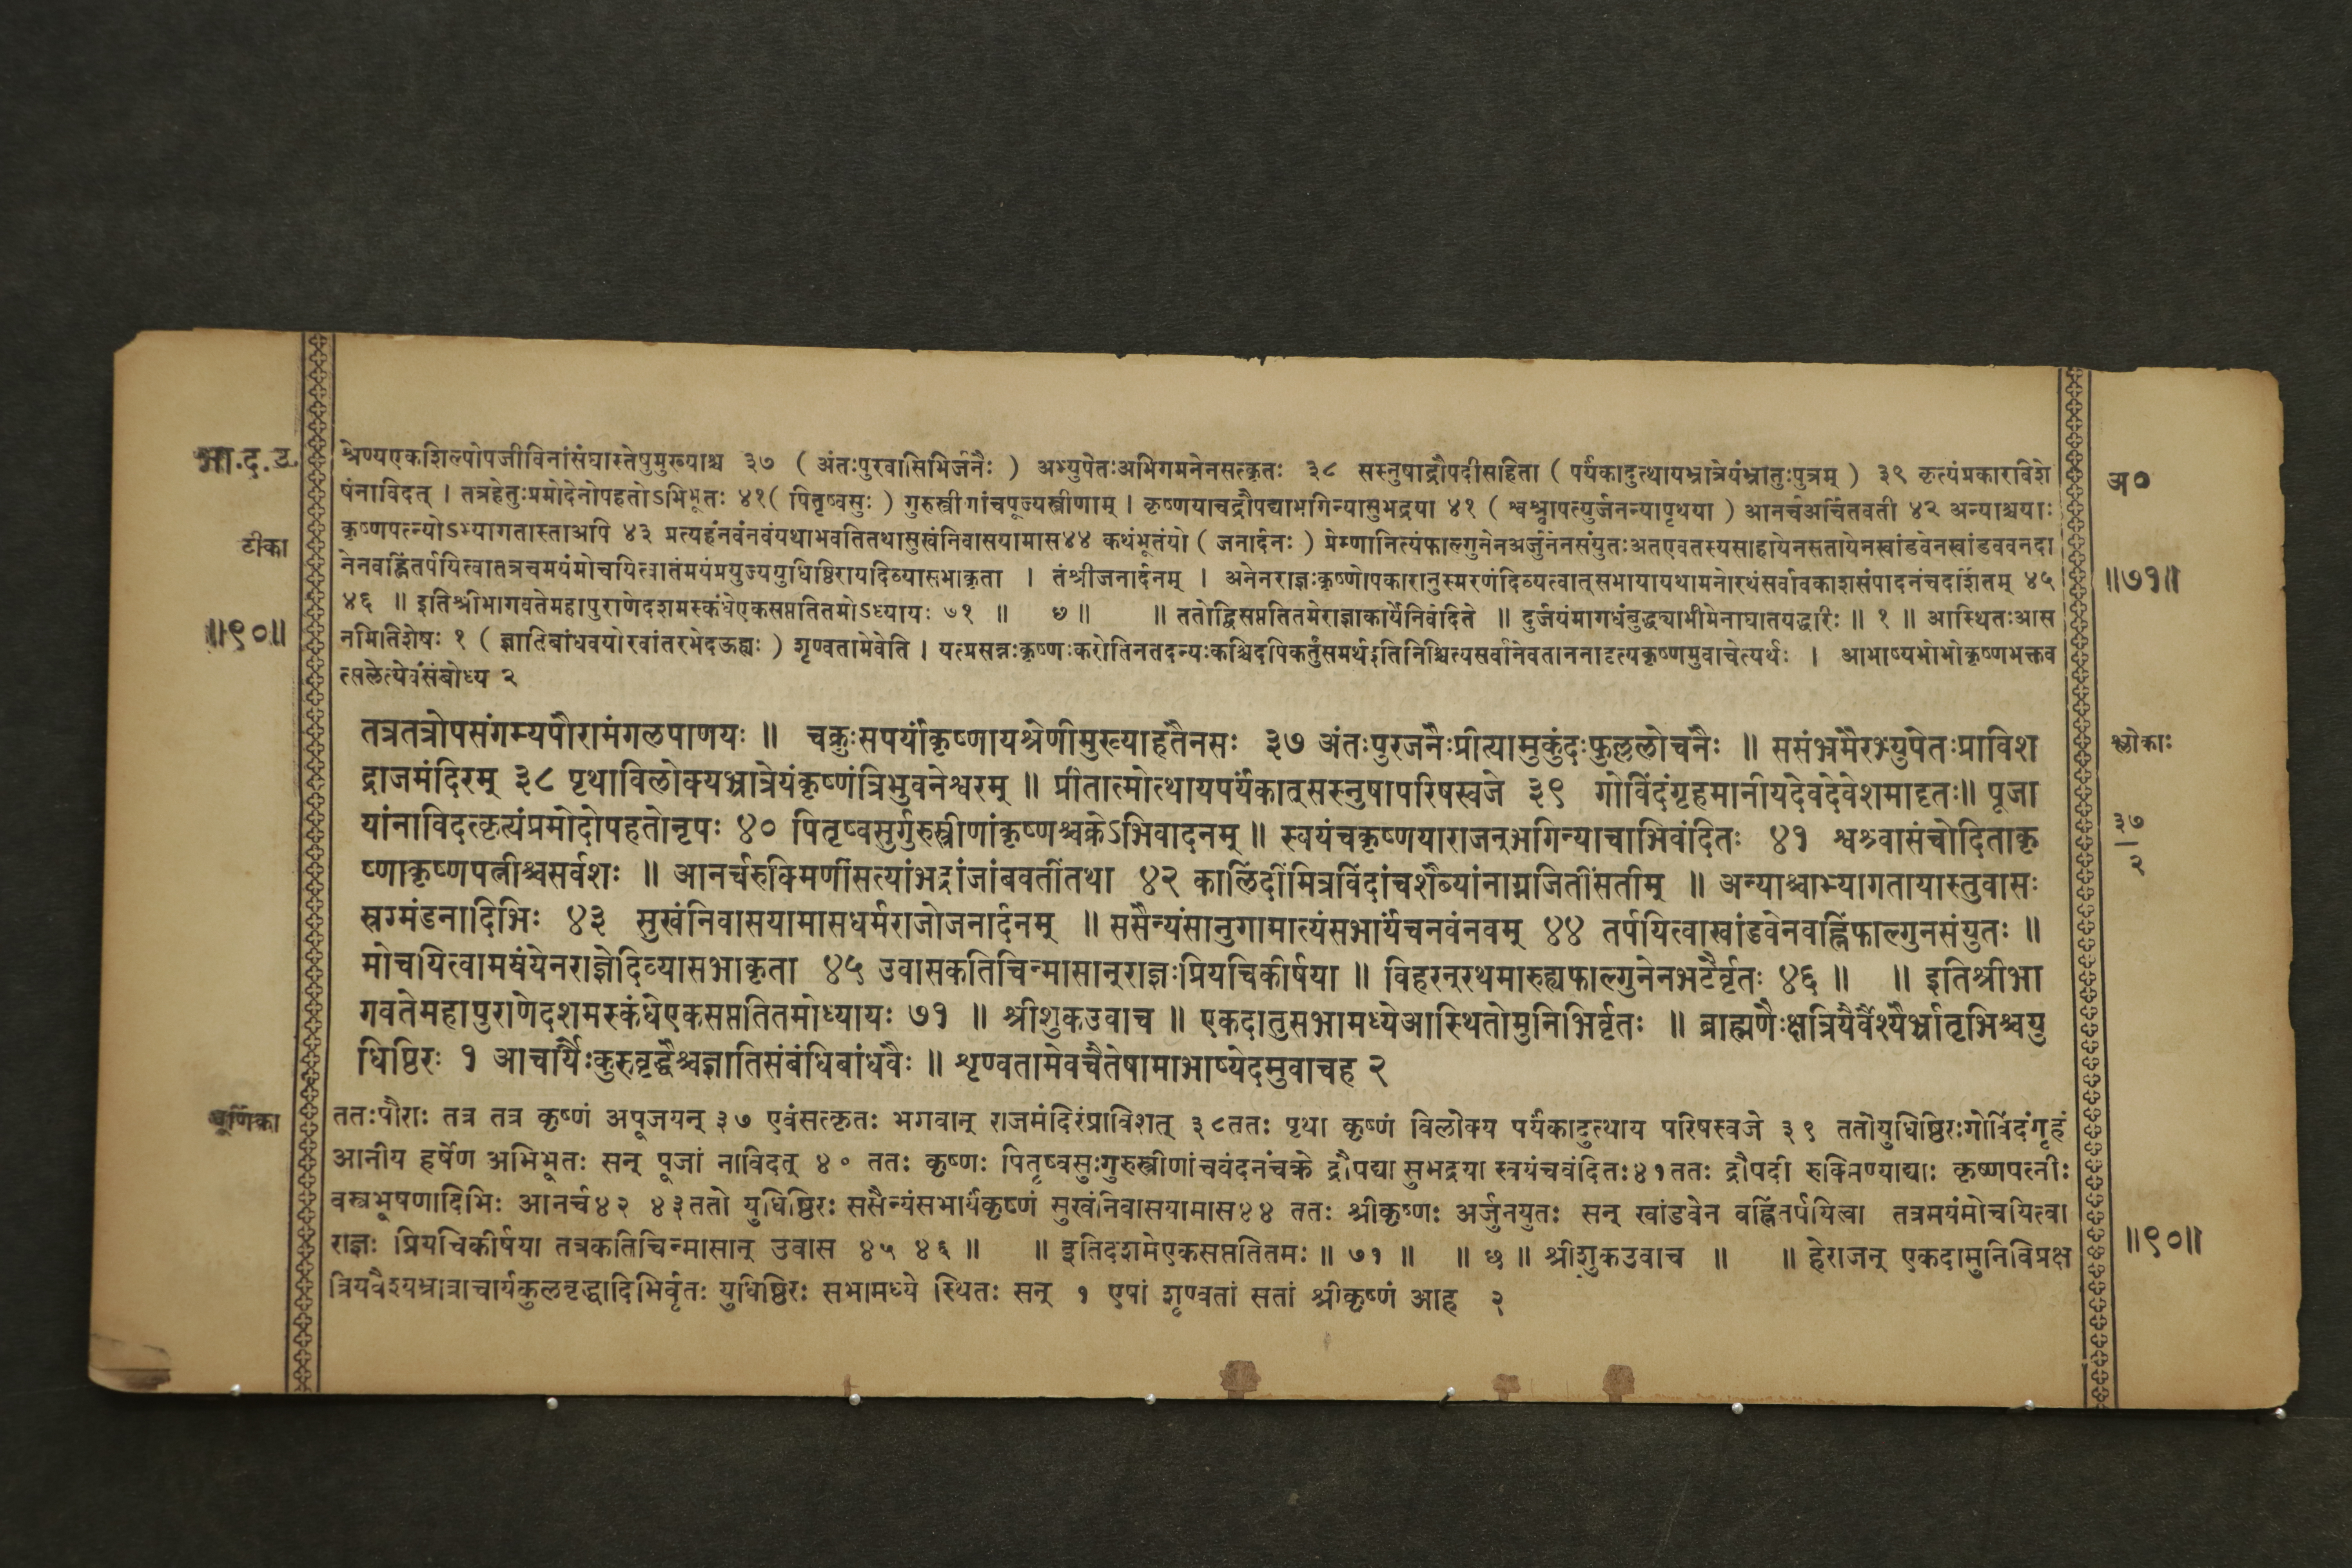 भा.द.उ.
श्रेण्यएकशिल्पोपजीविनांसंघास्तेषुमुख्याश्च ३७ ( अंतःपुरवासिभिर्जनैः ) अभ्युपेतःअभिगमनेनसत्कृतः ३८ सस्नुषाद्रौपदीसहिता ( पर्यंकादुत्थायभ्रात्रेयंभ्रातुःपुत्रम् ) ३९ कृत्यंप्रकारविशे
अ०
षंनाविदत् । तत्रहेतुःप्रमोदेनोपहतोऽभिभूतः ४१( पितृष्वसुः ) गुरुस्त्रीणांचपूज्यस्त्रीणाम् । कृष्णयाचद्रौपद्याभगिन्यासुभद्रया ४१ ( श्वश्र्वापत्युर्जनन्यापृथया ) आनर्चअर्चितवती ४२ अन्याश्चयाः
टीका
कृष्णपत्न्योऽभ्यागतास्ताअपि ४३ प्रत्यहंनवंनवंयथाभवतितथासुखंनिवासयामास४४ कथंभूतंयो ( जनार्दनः ) प्रेम्णानित्यंफाल्गुनेनअर्जुनेनसंयुतःअतएवतस्यसाहायेनसतायेनखांडवेनखांडववनदा
नेनवह्निंतर्पयित्वातत्रचमयंमोचयित्वातंमयंप्रयुज्ययुधिष्ठिरायदिव्यासभाकृता । तंश्रीजनार्दनम् । अनेनराज्ञःकृष्णोपकारानुस्मरणंदिव्यत्वात्सभायायथामनोरथंसर्वावकाशसंपादनंचदर्शितम् ४५
॥७१॥
४६ ॥ इतिश्रीभागवतेमहापुराणेदशमस्कंधेएकसप्ततितमोऽध्यायः ७१ ॥ छ ॥ ॥ ततोद्विसप्ततितमेराज्ञाकार्येनिवेदिते ॥ दुर्जयंमागधंबुद्ध्वाभीमेनाघातयद्धरिः ॥ १ ॥ आस्थितःआस
॥९०॥
नमितिशेषः १ ( ज्ञातिबांधवयोरवांतरभेदऊह्यः ) शृण्वतामेवेति । यत्प्रसन्नःकृष्णःकरोतिनतदन्यःकश्चिदपिकर्तुंसमर्थइतिनिश्चित्यसर्वानेवताननादृत्यकृष्णमुवाचेत्यर्थः । आभाष्यभोभोकृष्णभक्तव
त्सलेत्येवंसंबोध्य २
तत्रतत्रोपसंगम्यपौरामंगलपाणयः ॥ चक्रुःसपर्यांकृष्णायश्रेणीमुख्याहतैनसः ३७ अंतःपुरजनैःप्रीत्यामुकुंदःफुल्ललोचनैः ॥ ससंभ्रमैरभ्युपेतःप्राविश
श्लोकाः
द्राजमंदिरम् ३८ पृथाविलोक्यभ्रात्रेयंकृष्णंत्रिभुवनेश्वरम् ॥ प्रीतात्मोत्थायपर्यंकात्सस्नुषापरिषस्वजे ३९ गोविंदंगृहमानीयदेवदेवेशमादृतः॥ पूजा
यांनाविदत्कृत्यंप्रमोदोपहतोनृपः ४० पितृष्वसुर्गुरुस्त्रीणांकृष्णश्चक्रेऽभिवादनम् ॥ स्वयंचकृष्णयाराजन्भगिन्याचाभिवंदितः ४१ श्वश्र्वासंचोदिताकृ
३७
२
ष्णाकृष्णपत्नीश्चसर्वशः ॥ आनर्चरुक्मिणींसत्यांभद्रांजांबवतींतथा ४२ कालिंदींमित्रविंदांचशैब्यांनाग्नजितींसतीम् ॥ अन्याश्चाभ्यागतायास्तुवासः
स्रग्मंडनादिभिः ४३ सुखंनिवासयामासधर्मराजोजनार्दनम् ॥ ससैन्यंसानुगामात्यंसभार्यंचनवंनवम् ४४ तर्पयित्वाखांडवेनवह्निंफाल्गुनसंयुतः ॥
मोचयित्वामयंयेनराज्ञेदिव्यासभाकृता ४५ उवासकतिचिन्मासान्राज्ञःप्रियचिकीर्षया ॥ विहरन्रथमारुह्यफाल्गुनेनभटैर्वृतः ४६ ॥ ॥ इतिश्रीभा
गवतेमहापुराणेदशमस्कंधेएकसप्ततितमोध्यायः ७१ ॥ श्रीशुकउवाच ॥ एकदातुसभामध्येआस्थितोमुनिभिर्वृतः ॥ ब्राह्मणैःक्षत्रियैर्वैश्यैर्भ्रातृभिश्चयु
धिष्ठिरः १ आचार्यैःकुरुवृद्धैश्चज्ञातिसंबंधिबांधवैः ॥ शृण्वतामेवचैतेषामाभाष्येदमुवाचह २
चूर्णिका
ततःपौराः तत्र तत्र कृष्णं अपूजयन् ३७ एवंसत्कृतः भगवान् राजमंदिरंप्राविशत् ३८ततः पृथा कृष्णं विलोक्य पर्यंकादुत्थाय परिषस्वजे ३९ ततोयुधिष्ठिरःगोविंदंगृहं
आनीय हर्षेण अभिभूतः सन् पूजां नाविदत् ४० ततः कृष्णः पितृष्वसुःगुरुस्त्रीणांचवंदनंचक्रे द्रौपद्या सुभद्रया स्वयंचवंदितः४१ततः द्रौपदी रुक्मिण्याद्याः कृष्णपत्नीः
वस्त्रभूषणादिभिः आनर्च४२ ४३ततो युधिष्ठिरः ससैन्यंसभार्यंकृष्णं सुखंनिवासयामास४४ ततः श्रीकृष्णः अर्जुनयुतः सन् खांडवेन वह्निंतर्पयित्वा तत्रमयंमोचयित्वा
राज्ञः प्रियचिकीर्षया तत्रकतिचिन्मासान् उवास ४५ ४६ ॥ ॥ इतिदशमेएकसप्ततितमः ॥ ७१ ॥ ॥ छ ॥ श्रीशुकउवाच ॥ ॥ हेराजन् एकदामुनिविप्रक्ष
॥९०॥
त्रियवैश्यभ्रात्राचार्यकुलवृद्धादिभिर्वृतः युधिष्ठिरः सभामध्ये स्थितः सन् १ एषां शृण्वतां सतां श्रीकृष्णं आह २